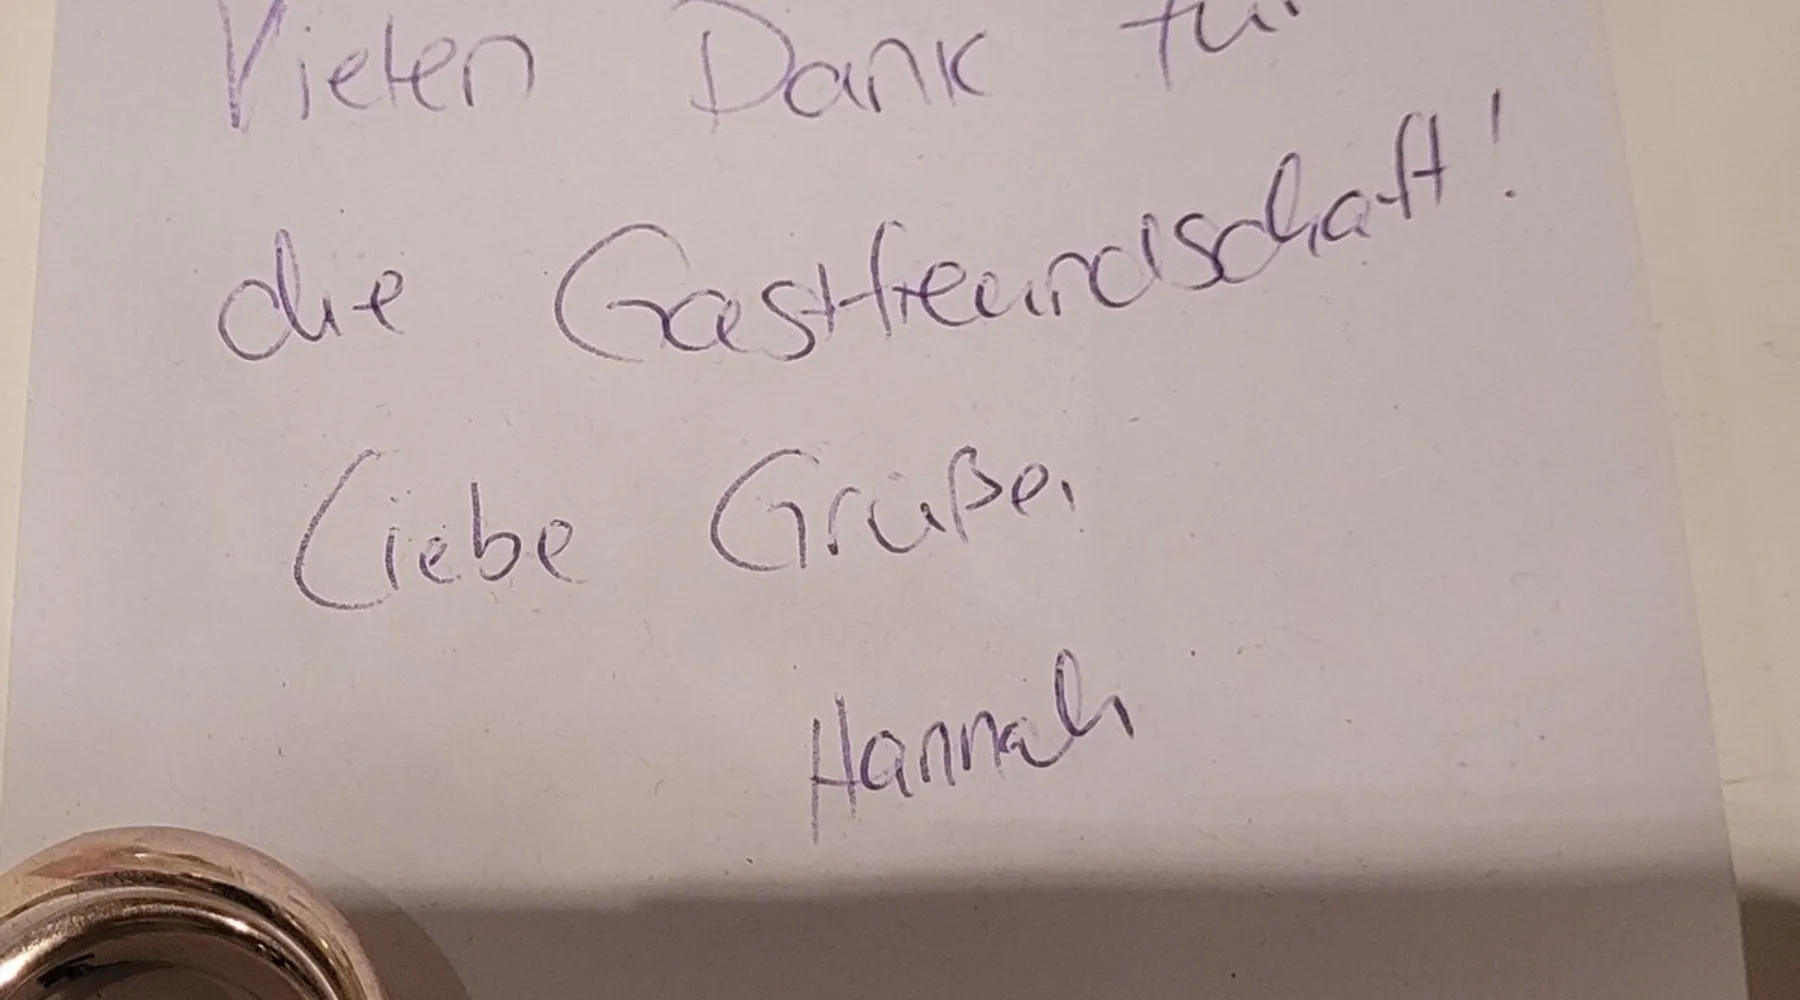 Vielen Dank für
die Gastfreundschaft!
Liebe Grüße,
Hannah